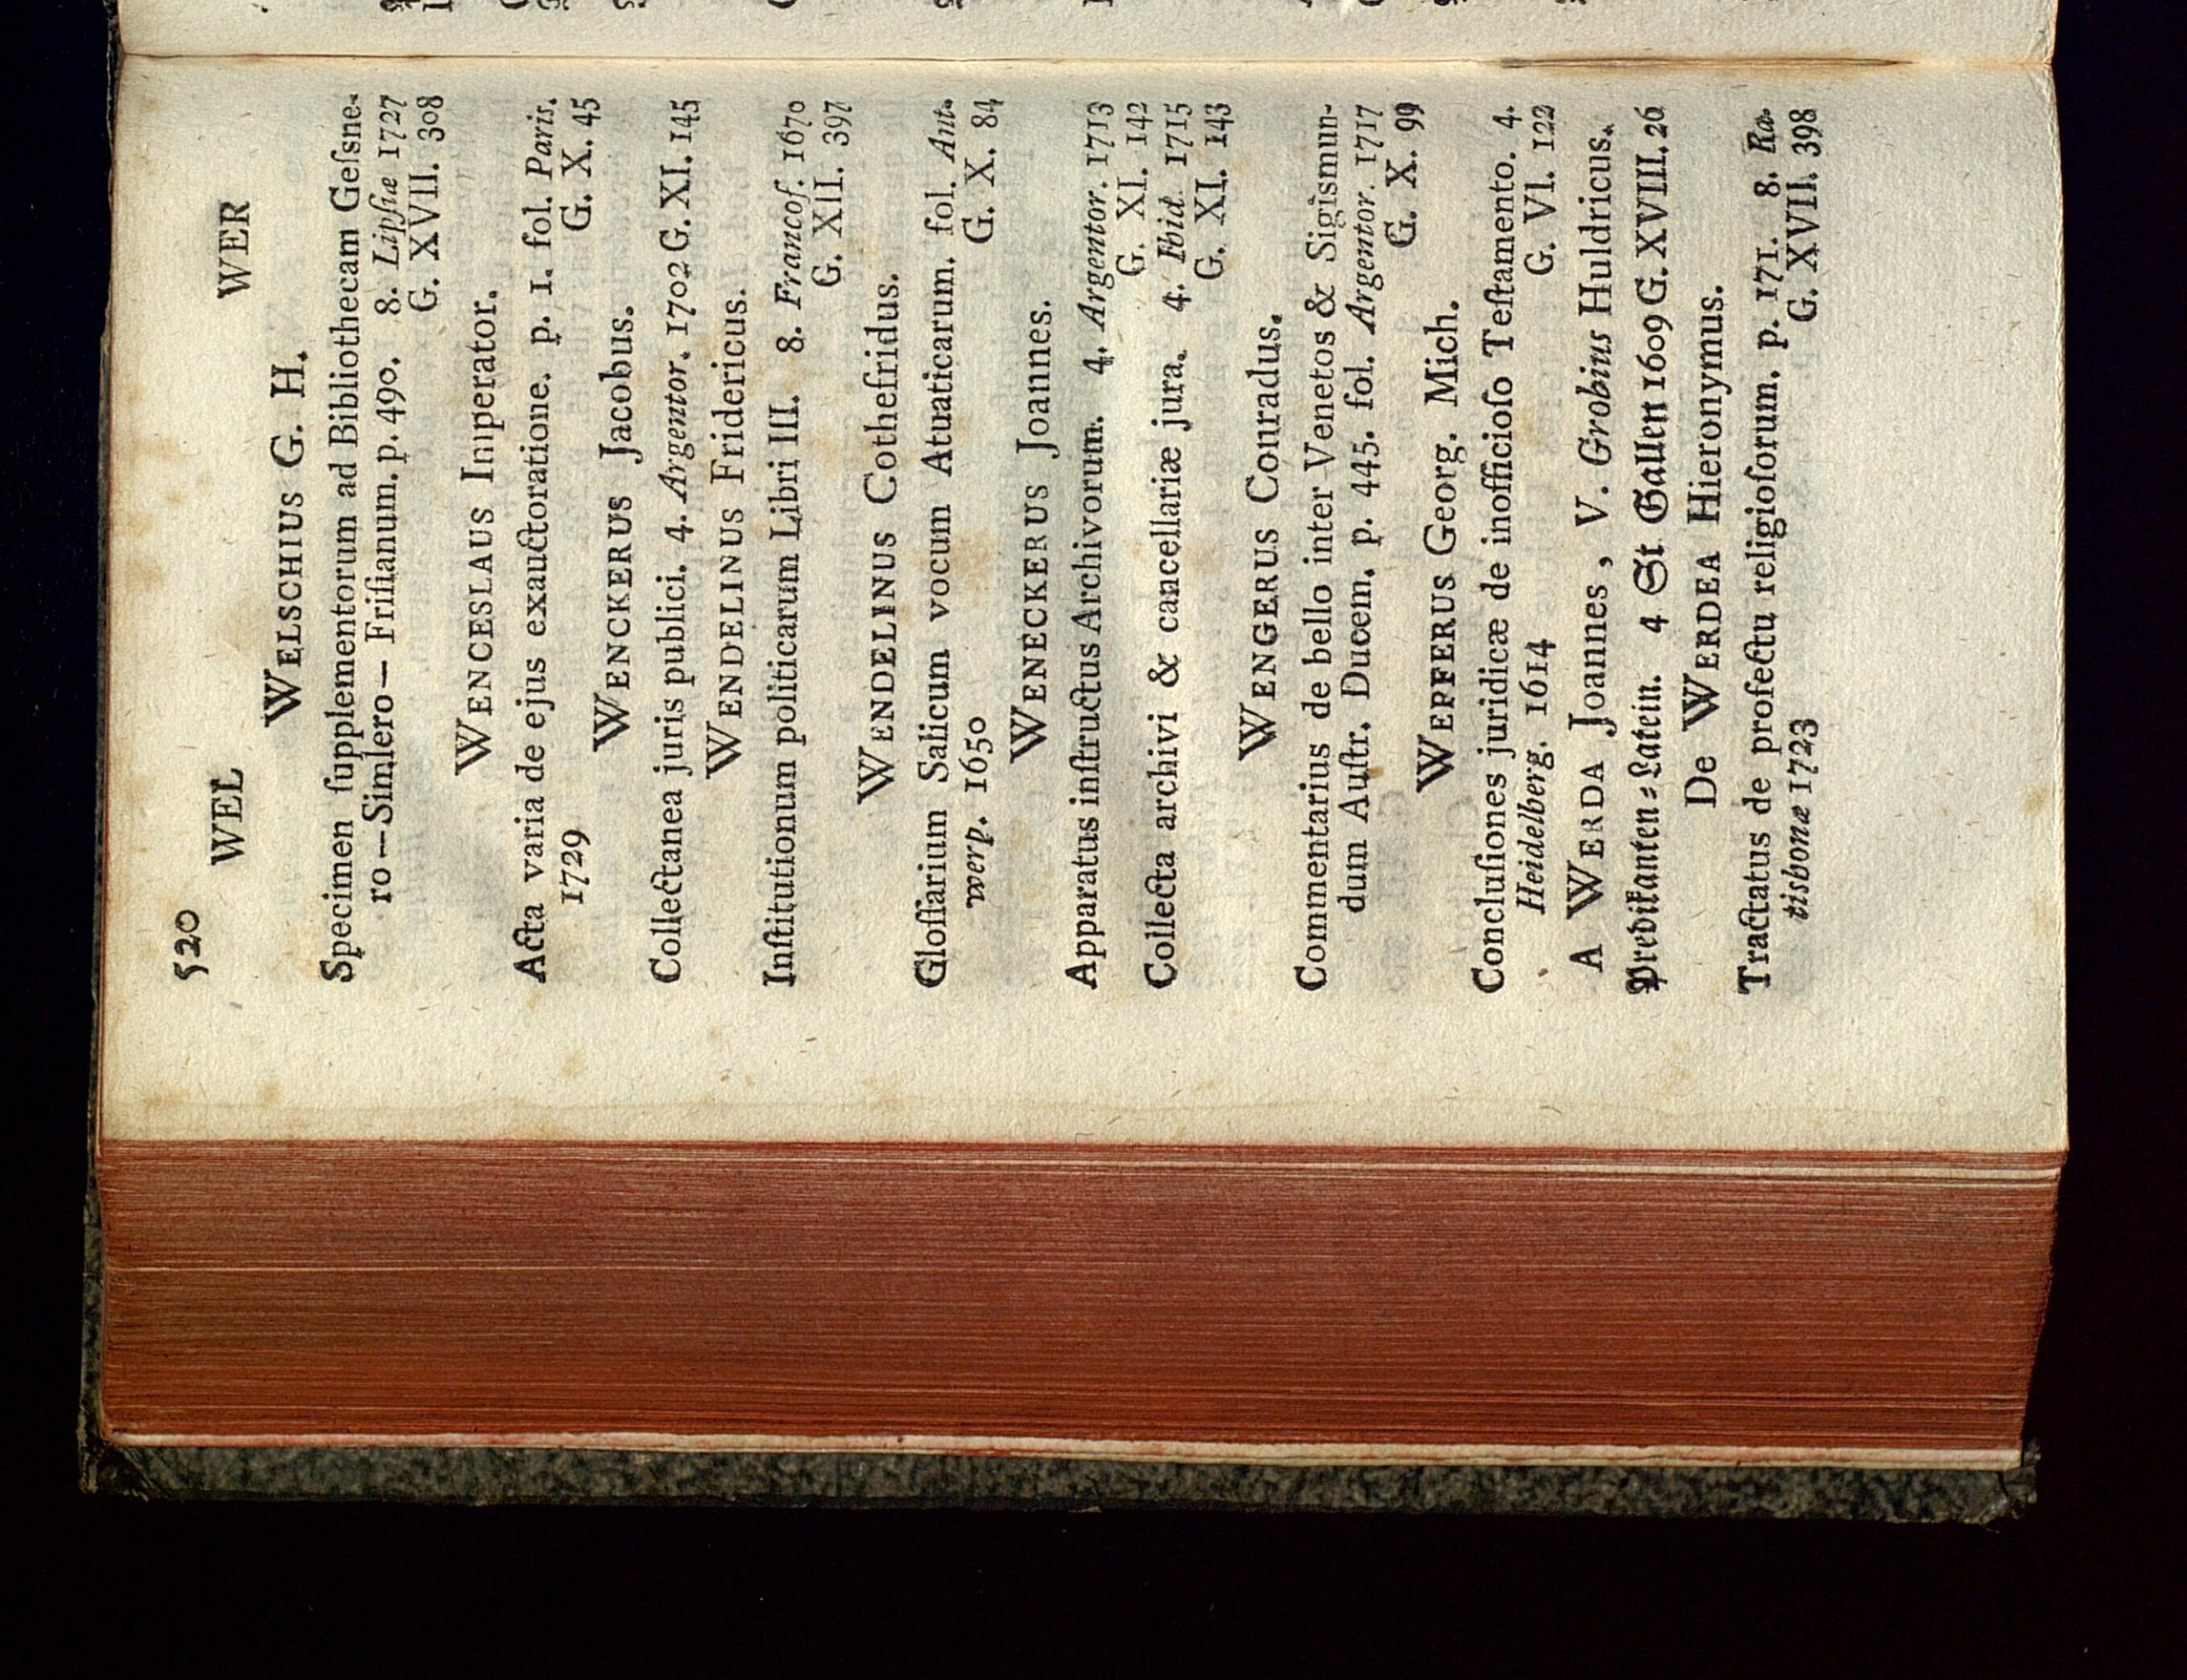 520
WEL WER
WELSCHIUS G. H.
Specimen ſupplementorum ad Bibliothecam Geſsne-
ro—Simlero—Friſianum. p. 490. 8. Lipſiæ 1727
G. XVII. 308
WENCESLAUS Imperator.
Acta varia de ejus exauctoratione. p. 1. fol. Paris.
1729 G. X. 45
WENCKERUS Jacobus.
Collectanea juris publici. 4. Argentor. 1702 G. XI. 145
WENDELINUS Fridericus.
Inſtitutionum politicarum Libri III. 8. Francof. 1670
G. XII. 397
WENDELINUS Cothefridus.
Gloſſarium Salicum vocum Atuaticarum. fol. Ant-
werp. 1650 G. X. 84
WENECKERUS Joannes.
Apparatus inſtructus Archivorum. 4. Argentor. 1713
G. XI. 142
Collecta archivi & cancellariæ jura. 4. Ibid. 1715
G. XI. 143
WENGERUS Conradus.
Commentarius de bello inter Venetos & Sigismun-
dum Auſtr. Ducem. p. 445. fol. Argentor. 1717
G. X. 99
WEPFERUS Georg. Mich.
Concluſiones juridicæ de inofficioſo Teſtamento. 4.
Heidelberg. 1614 G. VI. 122
A WERDA Joannes, V. Grobius Huldricus.
Predikanten-Latein. 4 St Gallen 1609 G. XVIII. 26
De WERDEA Hieronymus.
Tractatus de profectu religioſorum. p. 171. 8. Ra-
tisbonæ 1723 G. XVII. 398